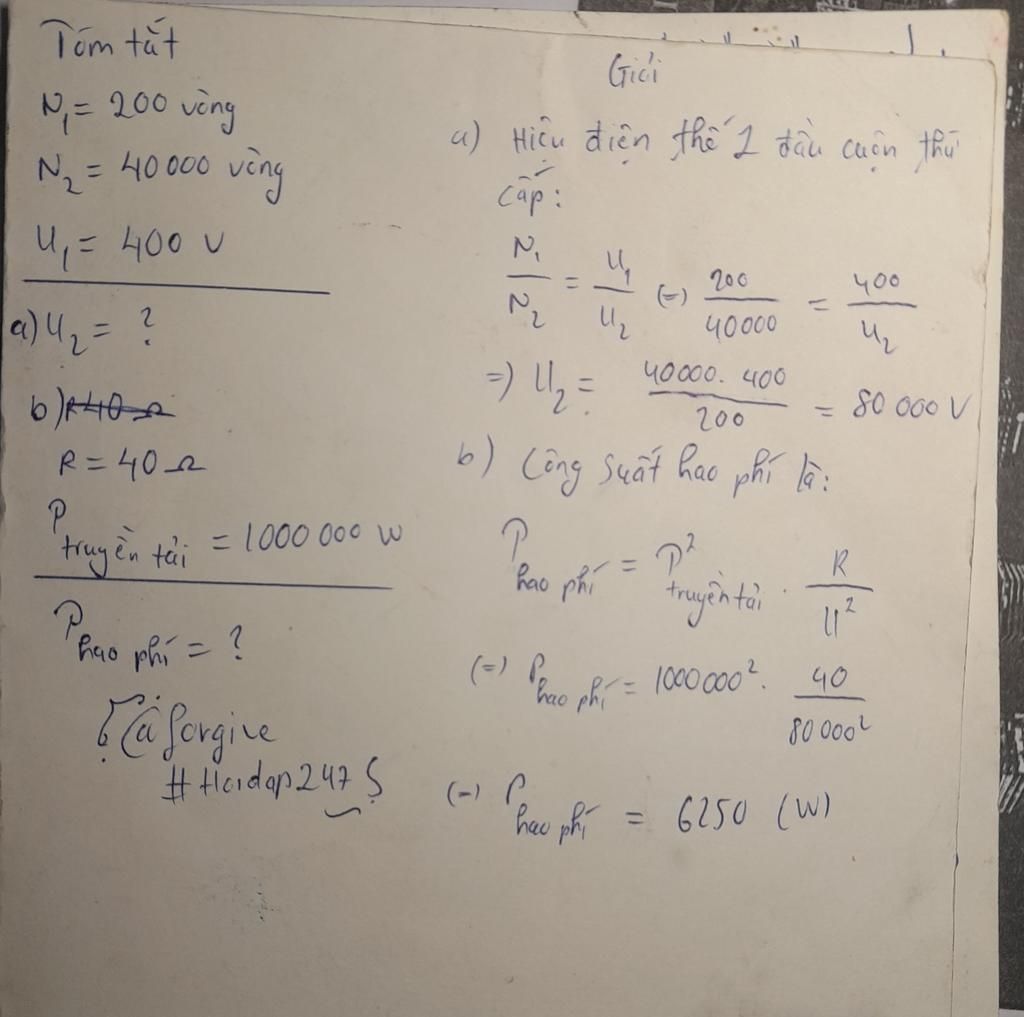 Tóm tắt
N₁ = 200 vòng
N₂ = 40 000 vòng
U₁ = 400 V
a) U₂ = ?
b) R = 40 Ω
R = 40 Ω
P truyền tải = 1000 000 W
P hao phí = ?
@forgive
#Hoidap247
Giải
a) Hiệu điện thế 2 đầu cuộn thứ
cấp:
N₁/N₂ = U₁/U₂ (=) 200/40000 = 400/U₂
=) U₂ = 40000. 400/200 = 80 000 V
b) Công suất hao phí là:
P hao phí = P² truyền tải . R/U²
(=) P hao phí = 1000 000². 40/80 000²
(=) P hao phí = 6250 (W)